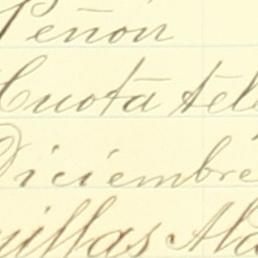 Peñón
Cuota tele
Diciembre
uillas Ala